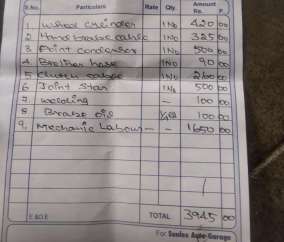 S.No. Particulars Rate Qty. Amount
Rs. P.
1 wheel cylinder 1No 420 00
2 Hand brake cable 1No 325 00
3 Point condenser 1No 500 00
4 Breather hose 1No 90 00
5 Clutch cable 1No 260 00
6 Joint Star 1No 500 00
7 welding - 100 00
8 Breake oil 100 00
9. Mechanic Labour - - 1650 00
E.&O.E. TOTAL 3945 00
For Sunlex Auto Garage